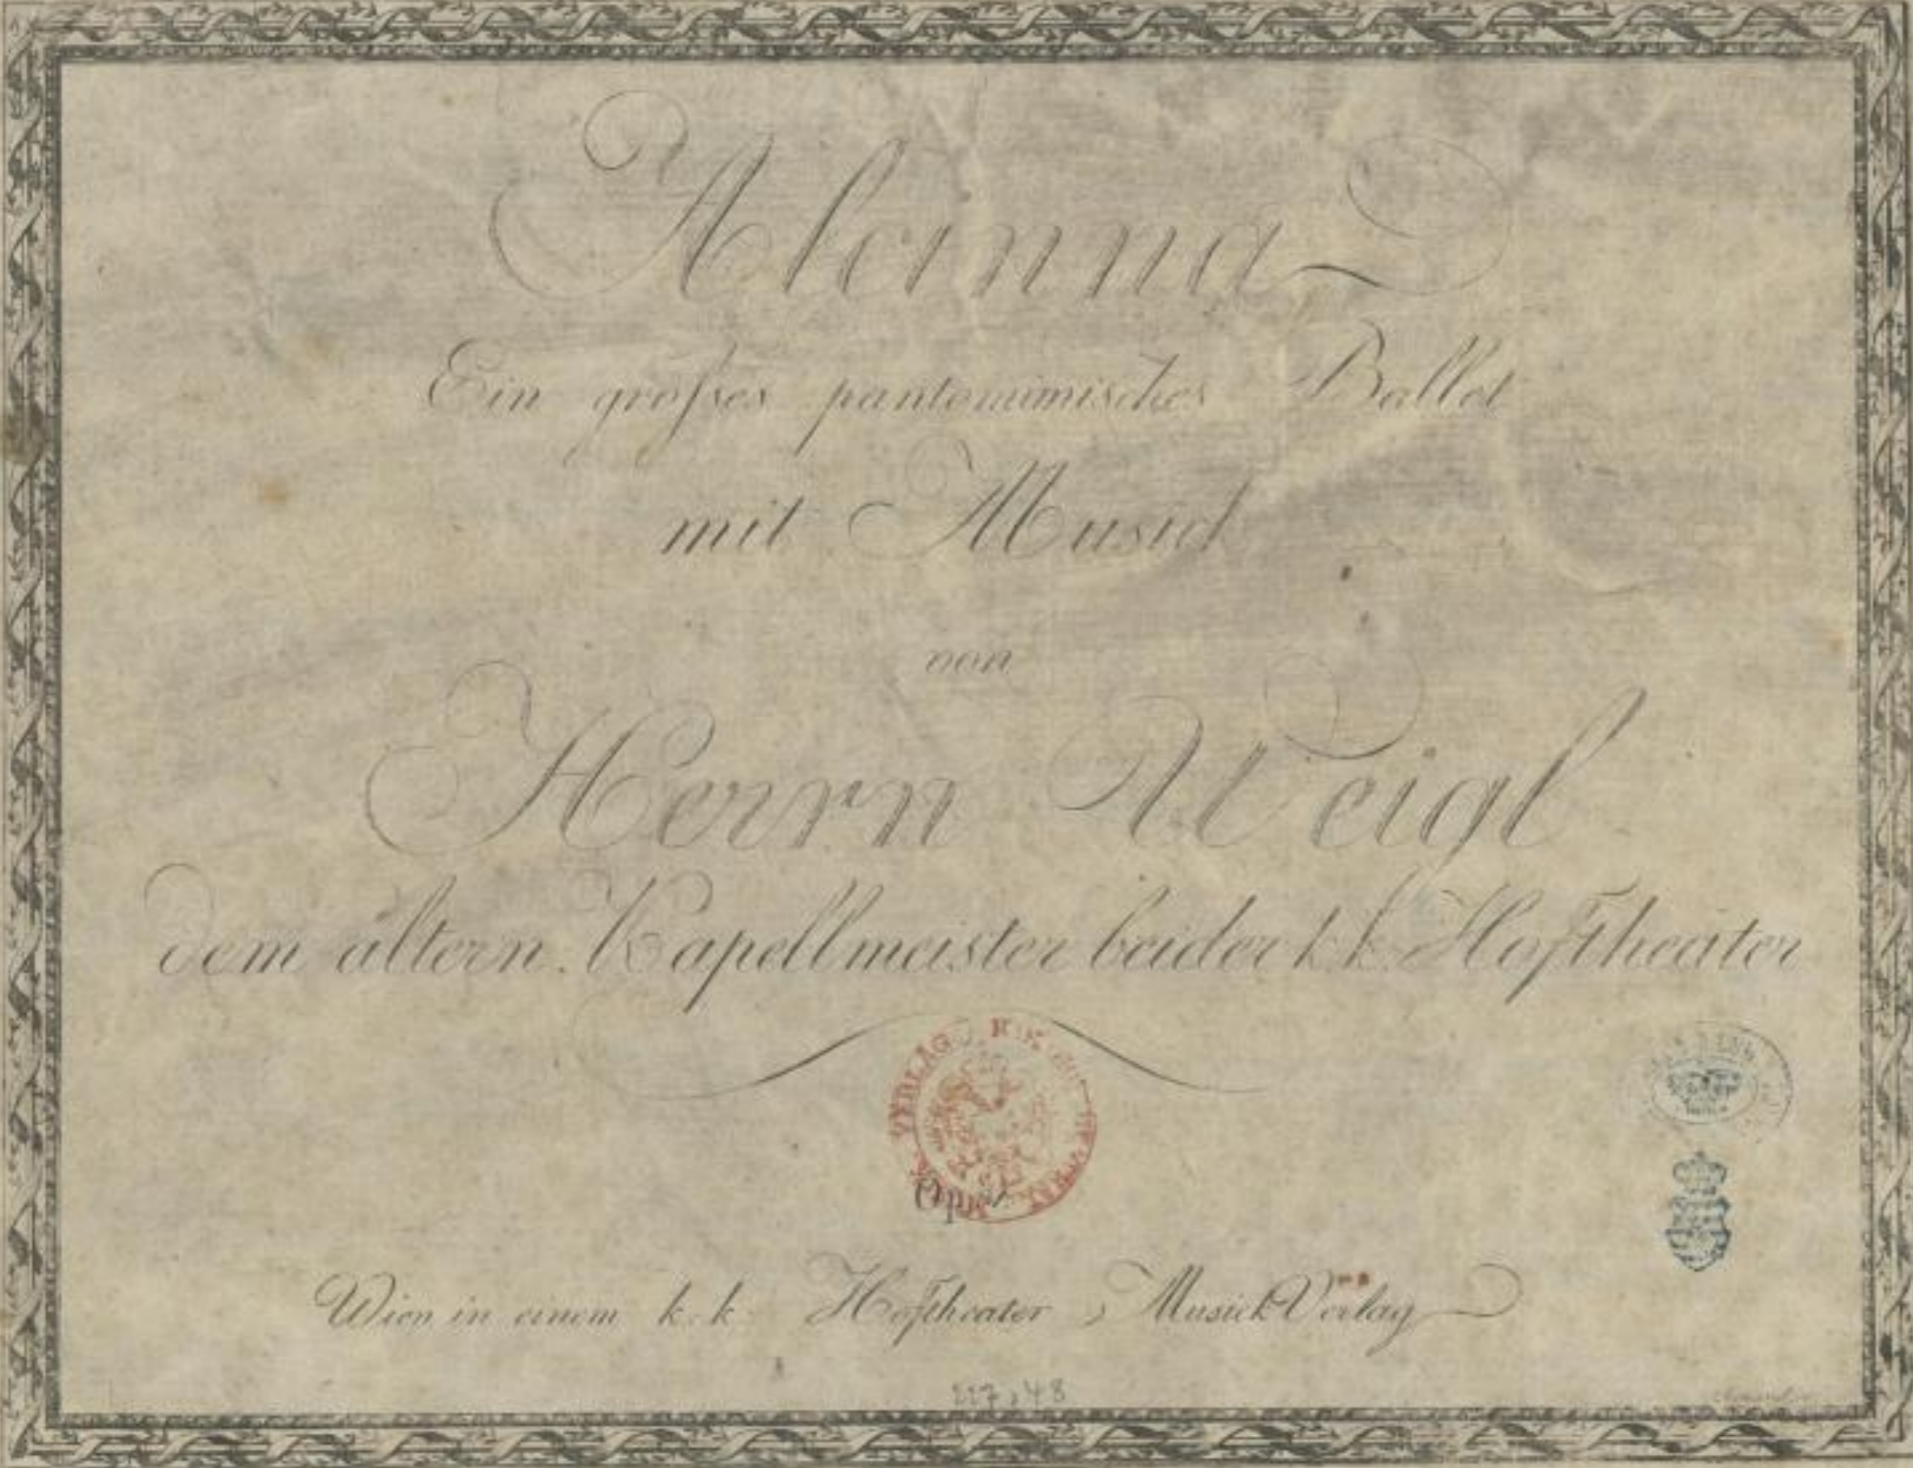 Alcinna
Ein großes pantomimisches Ballet
mit Musick
von
Herrn Weigl
dem ältern. Kapellmeister beider k. k. Hoftheater
VERLAG
Wien in einem k. k. Hoftheater Musick Verlag
227,48